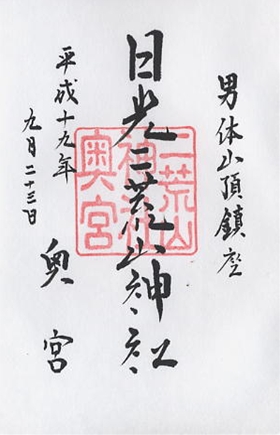 男体山頂鎮座
日光二荒山神社
奥宮
平成十九年
九月二十三日
二荒山
神社
奥宮